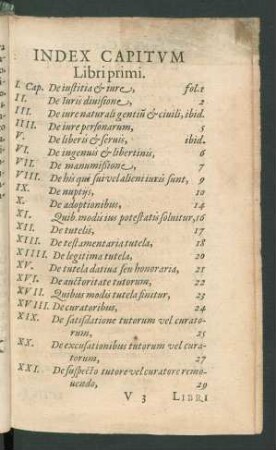 INDEX CAPITVM
Libri primi.
I. Cap. De iustitia & iure, fol.1
II. De iuris diuisione, 2
III. De iure naturali gentiũ & ciuili, ibid.
IIII. De iure personarum, 5
V. De liberis & seruis, ibid.
VI. De ingenuis & libertinis, 6
VII. De manumissione, 7
VIII. De his qui sui vel alieni iuris sunt, 9
IX. De nuptijs, 10
X. De adoptionibus, 14
XI. Quib. modis ius potestatis soluitur, 16
XII. De tutelis, 17
XIII. De testamentaria tutela, 18
XIIII. De legitima tutela, 20
XV. De tutela datiua seu honoraria, 21
XVI. De auctoritate tutorum, 22
XVII. Quibus modis tutela finitur, 23
XVIII. De curatoribus, 24
XIX. De satisdatione tutorum vel curato-
rum, 25
XX. De excusationibus tutorum vel cura-
torum, 27
XXI. De suspecto tutore vel curatore remo-
uendo, 29
V 3 LIBRI